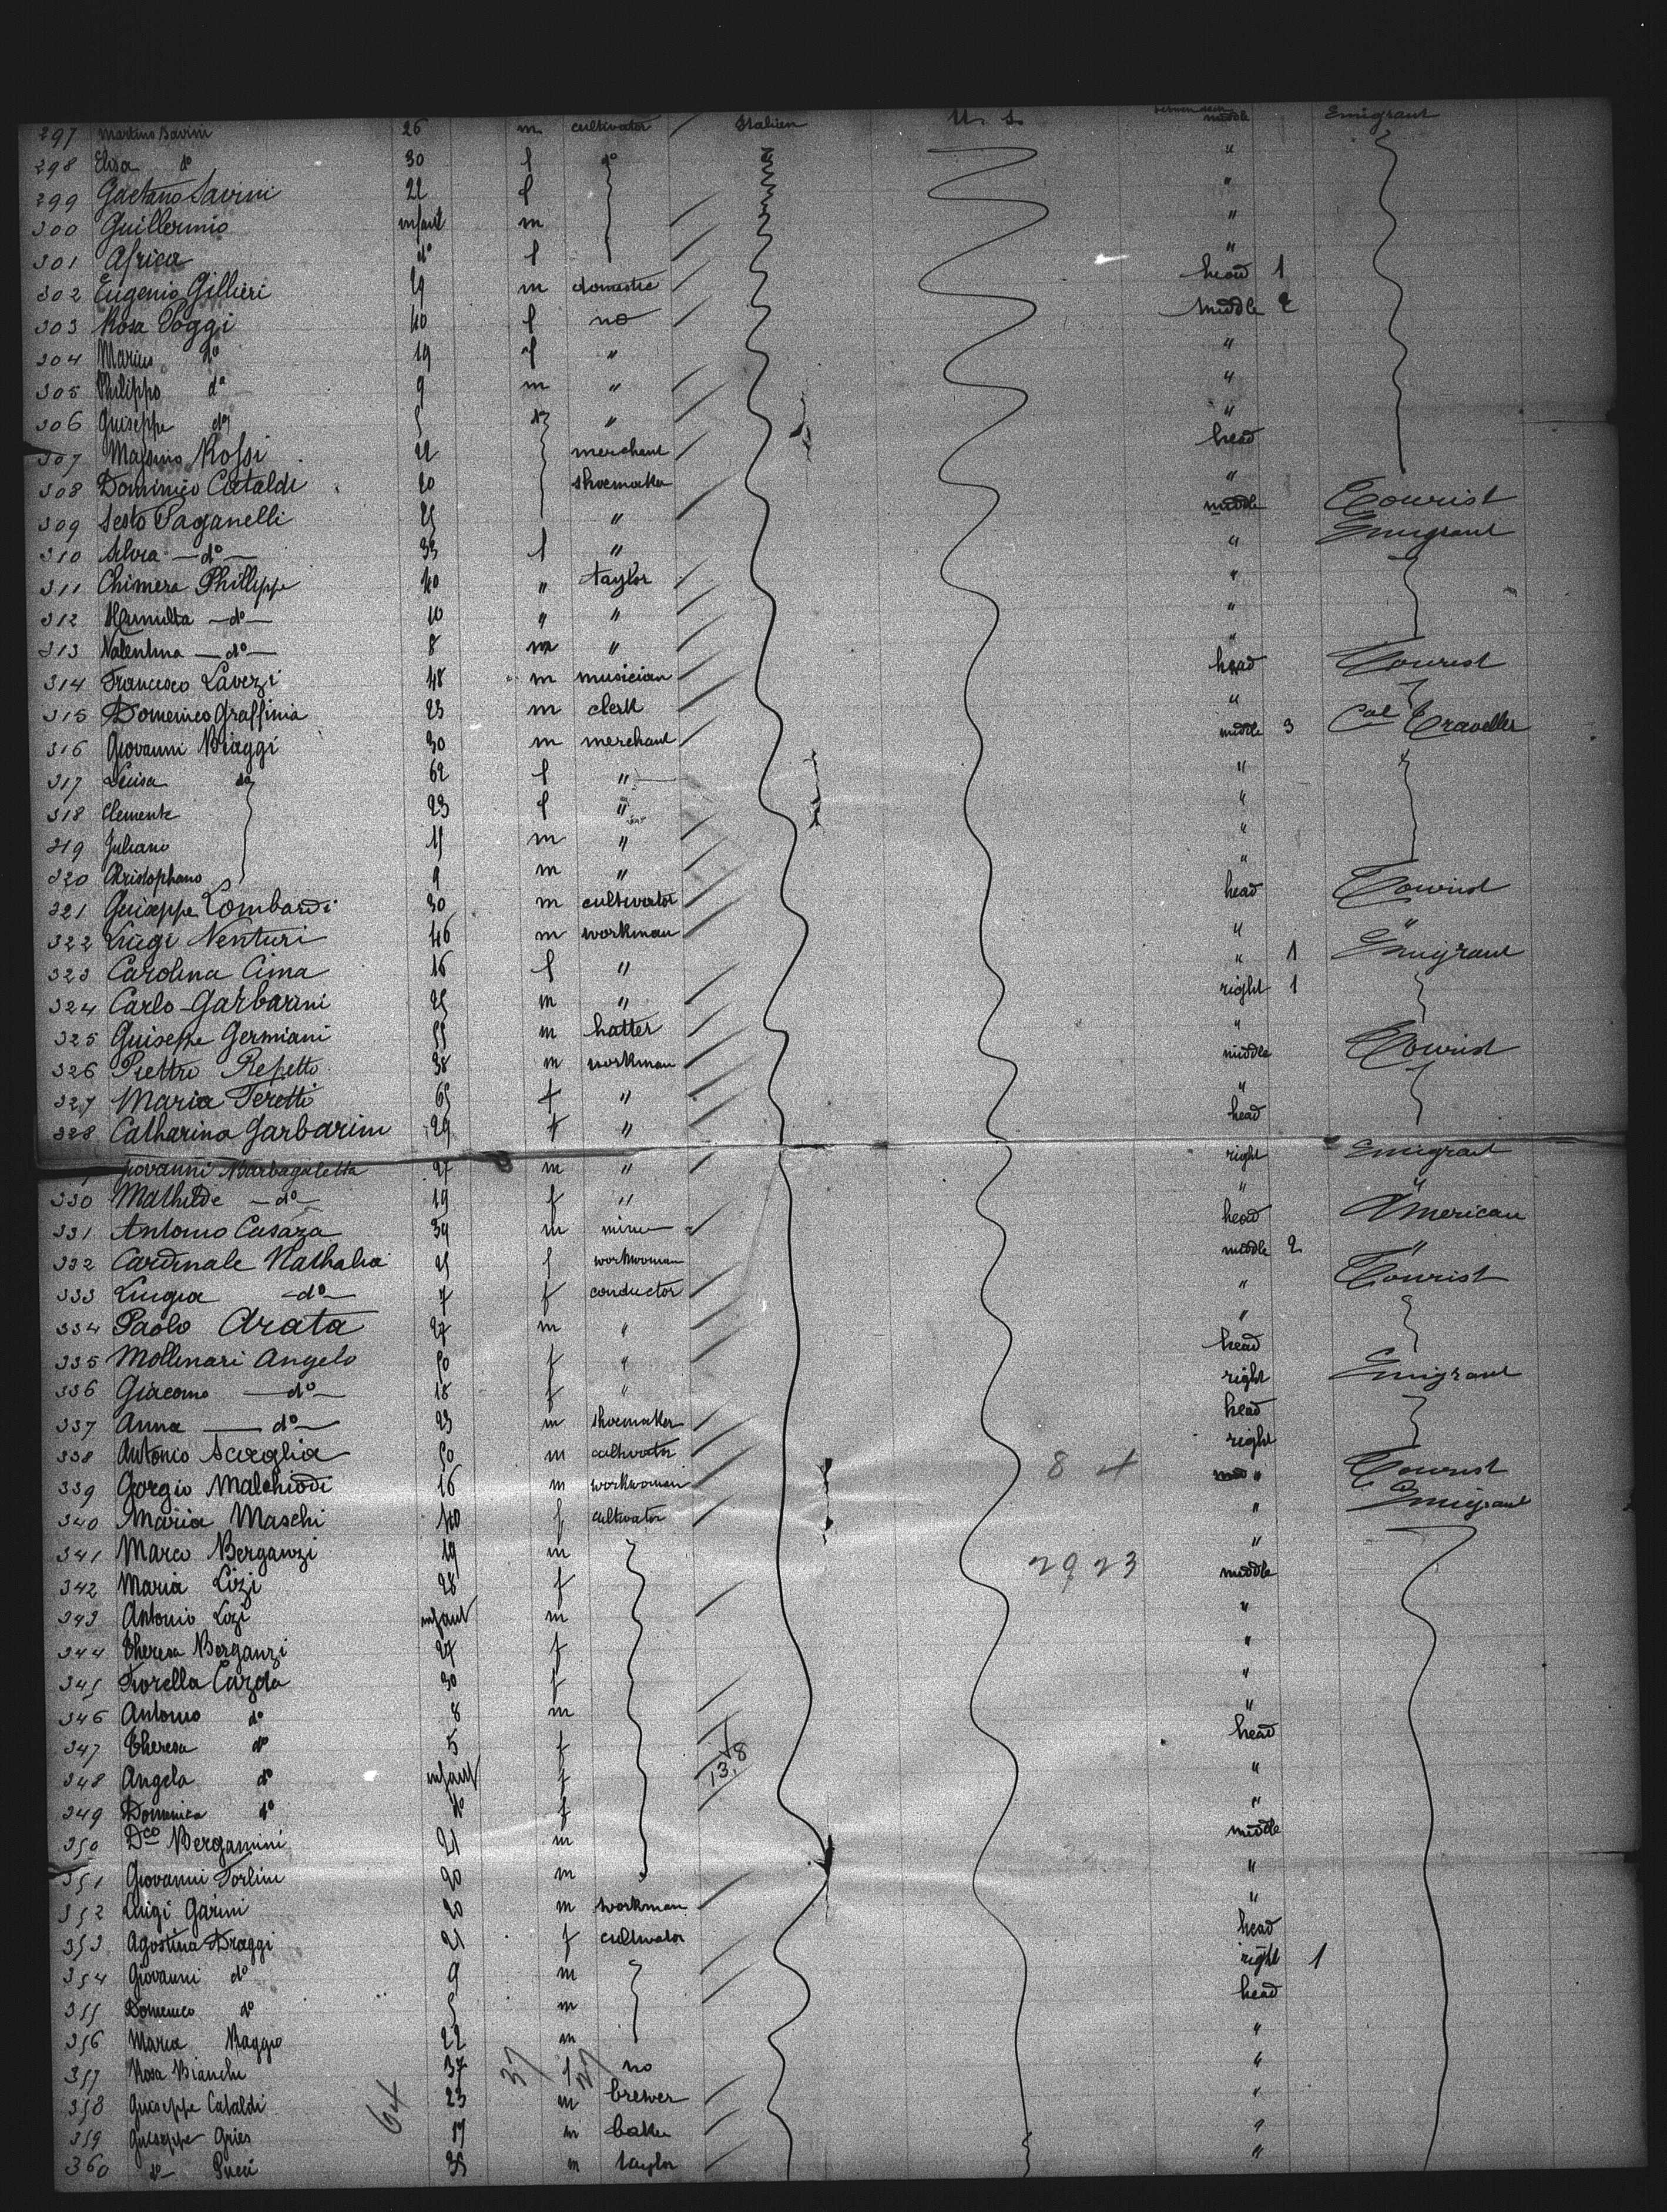 297 Martino Savini 26 m cultivator Italien U. S. middle Emigrant
298 Elisa do 30 f do "
299 Gaetano Savini 22 f "
300 Guillermio infant m "
301 Africa do f "
302 Eugenio Gillieri 19 m domestic head 1
303 Rosa Poggi 40 f no middle 2
304 Marius do 19 f " "
305 Philippo do 9 m " "
306 Guiseppe do 5 do " "
307 Massimo Rossi 22 merchant head
308 Dominico Cataldi 20 shoemaker "
309 Sesto Paganelli 25 " middle Tourist
310 Silvia do 33 f " " Emigrant
311 Chimera Philippe 40 " taylor "
312 do 10 " " "
313 Valentina do 8 m " "
314 Francesco Lavezzi 48 m musician head Tourist
315 Domenico Graffinia 23 m clerk "
316 Giovanni Biaggi 30 m merchant middle 3 Traveller
317 Luisa do 62 f " "
318 Clemente 23 f " "
319 Juliano 15 m " "
320 Christophano 9 m " "
321 Guiseppe Lombardi 30 m cultivator head Tourist
322 Luigi Venturi 46 m workman " "
323 Carolina Cima 16 f " " 1 Emigrant
324 Carlo Garbarini 25 m " right 1
325 Guiseppe Germiani 55 m hatter "
326 Piettro Repetto 38 m workman middle Tourist
327 Maria Feretti 65 f " "
328 Catharina Garbarini 29 f " head
Giovanni Barbagaletta 27 m " right Emigrant
330 Mathilde do 19 f " " "
331 Antonio Casaza 39 m miner head American
332 Cardinale Nathalia 25 f workwoman middle 2 "
333 Luigia do 7 f conductor " Tourist
334 Paolo Arata 27 m " "
335 Mollinari Angelo 50 f " head
336 Giacomo do 18 f " right Emigrant
337 Anna do 23 m shoemaker head
338 Antonio Scaglia 50 m cultivator right
339 Gorgio Malchiodi 16 m workwoman 84 " Tourist
340 Maria Maschi 40 f cultivator " Emigrant
341 Marco Berganzi 19 m "
342 Maria Lizi 28 f 2923 middle
343 Antonio Lozi infant m "
344 Theresa Berganzi 27 f "
345 Fiorella Cazola 30 f "
346 Antonio do 8 m "
347 Theresa do 5 f head
348 Angela do infant f 13.8 "
349 Domenica do do f "
350 Dco Bergamini 21 m middle
351 Giovanni Forlini 20 m "
352 Luigi Garini 20 m workman "
353 Agostina Draggi 21 f cultivator head
354 Giovanni do 9 m right 1
355 Domenico do 5 m head
356 Maria Baggio 22 m "
357 Rosa Bianchi 37 37 f 27 no "
358 Guiseppe Cataldi 64 23 m brewer "
359 Guiseppe Gries 19 m baker "
360 do 35 m taylor "